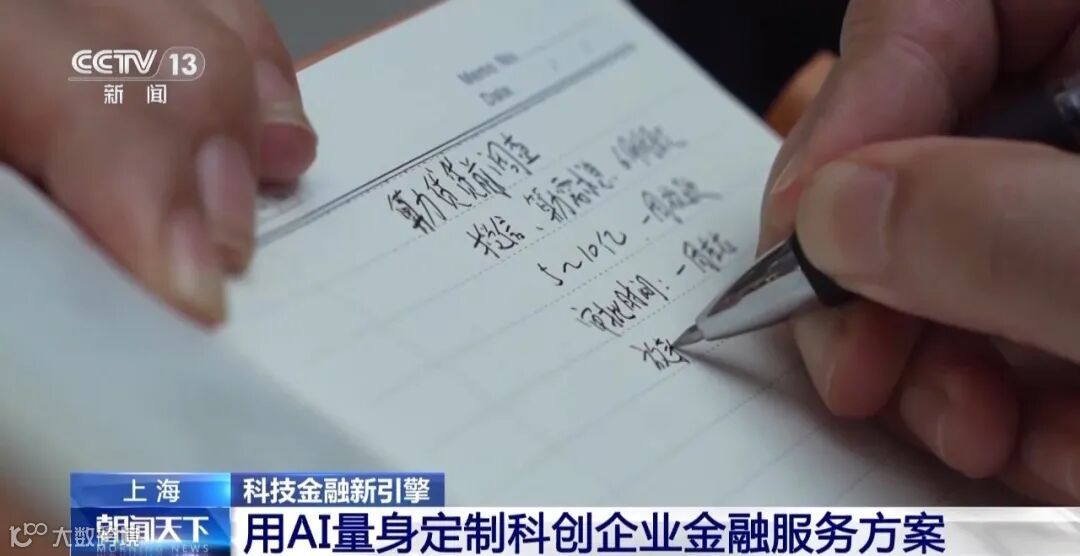 CCTV 13
新闻
Memo No.
Date
算力贷贷前调查
授信、算力需求:
5~10亿 一周
审批时间:一周
放
上海
科技金融新引擎
朝闻天下
用AI量身定制科创企业金融服务方案
大数跨境